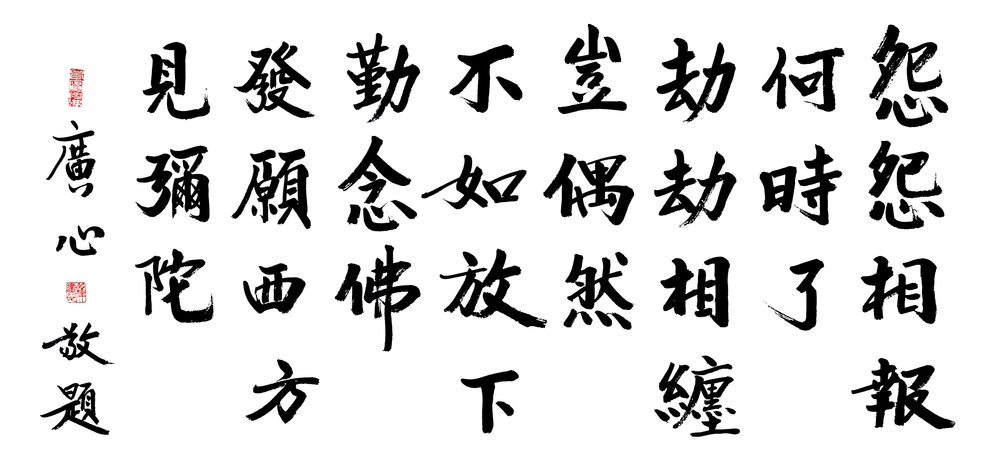 怨怨相報
何時了
劫劫相纏
豈偶然
不如放下
勤念佛
發願西方
見彌陀
廣心敬題